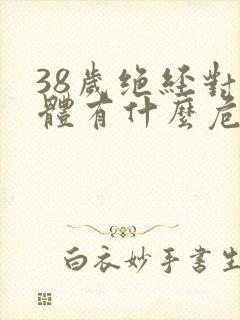 38歲绝經對
體有什麼危
白衣妙手書生